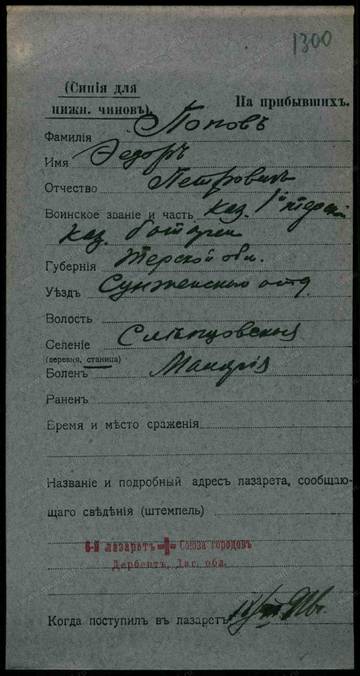 1300
(Синія для
нижн. чиновъ).
На прибывшихъ.
Фамилія Поповъ
Имя Ѳедоръ
Отчество Петровичъ
Воинское званіе и часть каз. 1й терской
каз. батареи
Губернія Терской обл.
Уѣздъ Сунженскаго отд.
Волость
Селеніе Слѣпцовская
(деревня, станица)
Боленъ Малярія
Раненъ
Время и мѣсто сраженія
Названіе и подробный адресъ лазарета, сообщаю-
щаго свѣдѣнія (штемпель)
6-й лазаретъ Союза городовъ
Дербентъ, Даг. обл.
Когда поступилъ въ лазаретъ